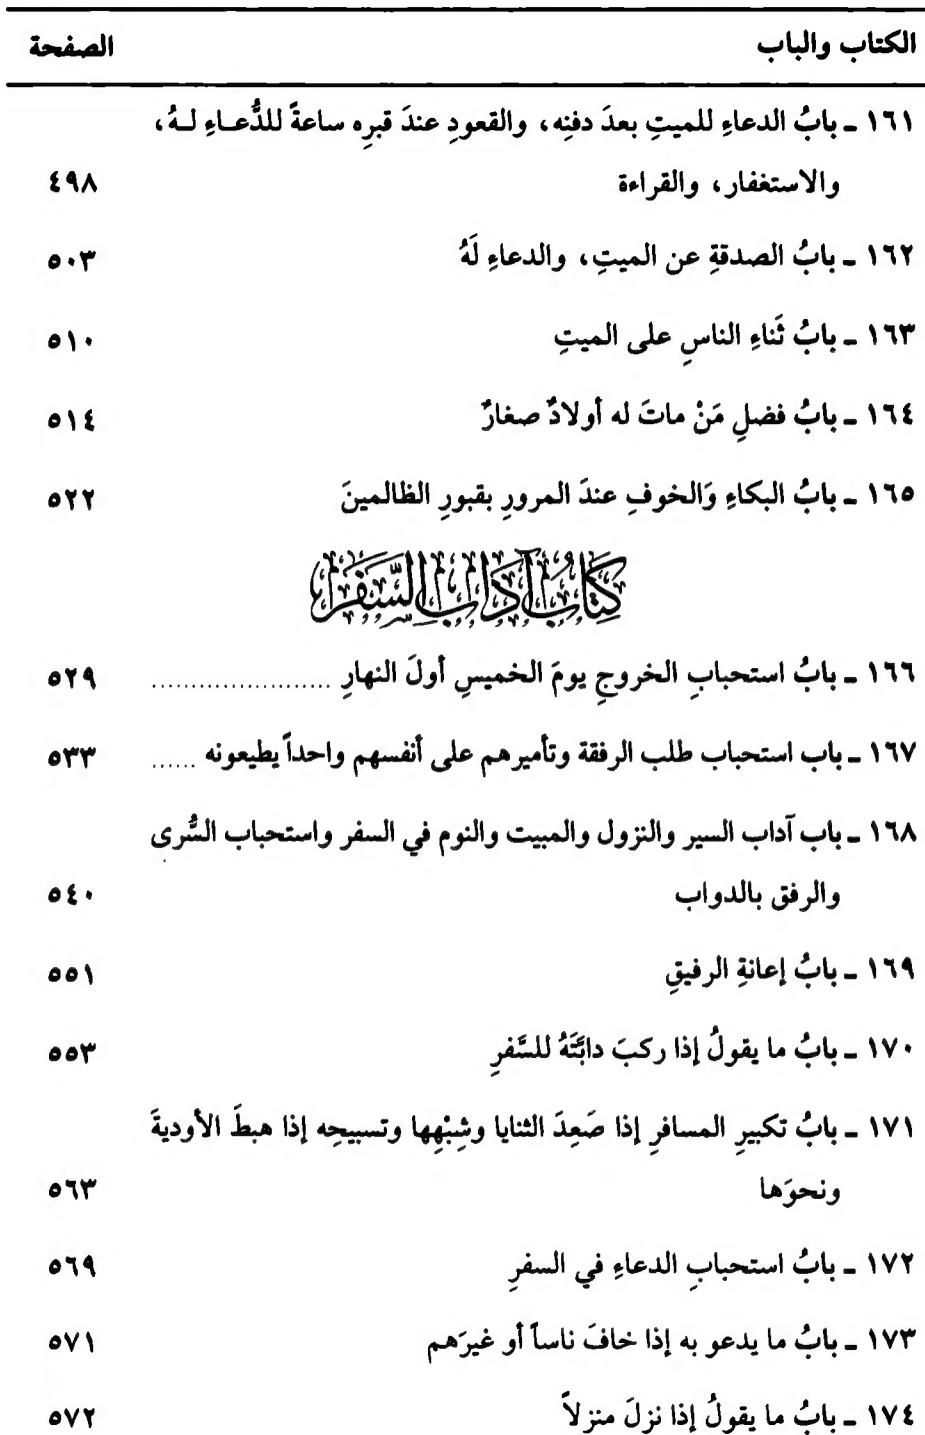 الكتاب والباب الصفحة
١٦١ ـ بابُ الدعاءِ للميتِ بعدَ دفنِه، والقعودِ عندَ قبرِه ساعةً للدُّعـاءِ لـهُ،
والاستغفار، والقراءة ٤٩٨
١٦٢ ـ بابُ الصدقةِ عن الميتِ، والدعاءِ لَهُ ٥٠٣
١٦٣ ـ بابُ ثَناءِ الناسِ على الميتِ ٥١٠
١٦٤ ـ بابُ فضلِ مَنْ ماتَ له أولادٌ صغارٌ ٥١٤
١٦٥ ـ بابُ البكاءِ وَالخوفِ عندَ المرورِ بقبورِ الظالمينَ ٥٢٢
كِتَابُ آدَابِ السَّفَرِ
١٦٦ ـ بابُ استحبابِ الخروجِ يومَ الخميسِ أولَ النهارِ ....................... ٥٢٩
١٦٧ ـ باب استحباب طلب الرفقة وتأميرهم على أنفسهم واحداً يطيعونه ...... ٥٣٣
١٦٨ ـ باب آداب السير والنزول والمبيت والنوم في السفر واستحباب السُّرى
والرفق بالدواب ٥٤٠
١٦٩ ـ بابُ إعانةِ الرفيقِ ٥٥١
١٧٠ ـ بابُ ما يقولُ إذا ركبَ دابَّتَهُ للسَّفرِ ٥٥٣
١٧١ ـ بابُ تكبيرِ المسافرِ إذا صَعِدَ الثنايا وشِبْهِها وتسبيحِه إذا هبطَ الأوديةَ
ونحوَها ٥٦٣
١٧٢ ـ بابُ استحبابِ الدعاءِ في السفرِ ٥٦٩
١٧٣ ـ بابُ ما يدعو به إذا خافَ ناساً أو غيرَهم ٥٧١
١٧٤ ـ بابُ ما يقولُ إذا نزلَ منزلاً ٥٧٢